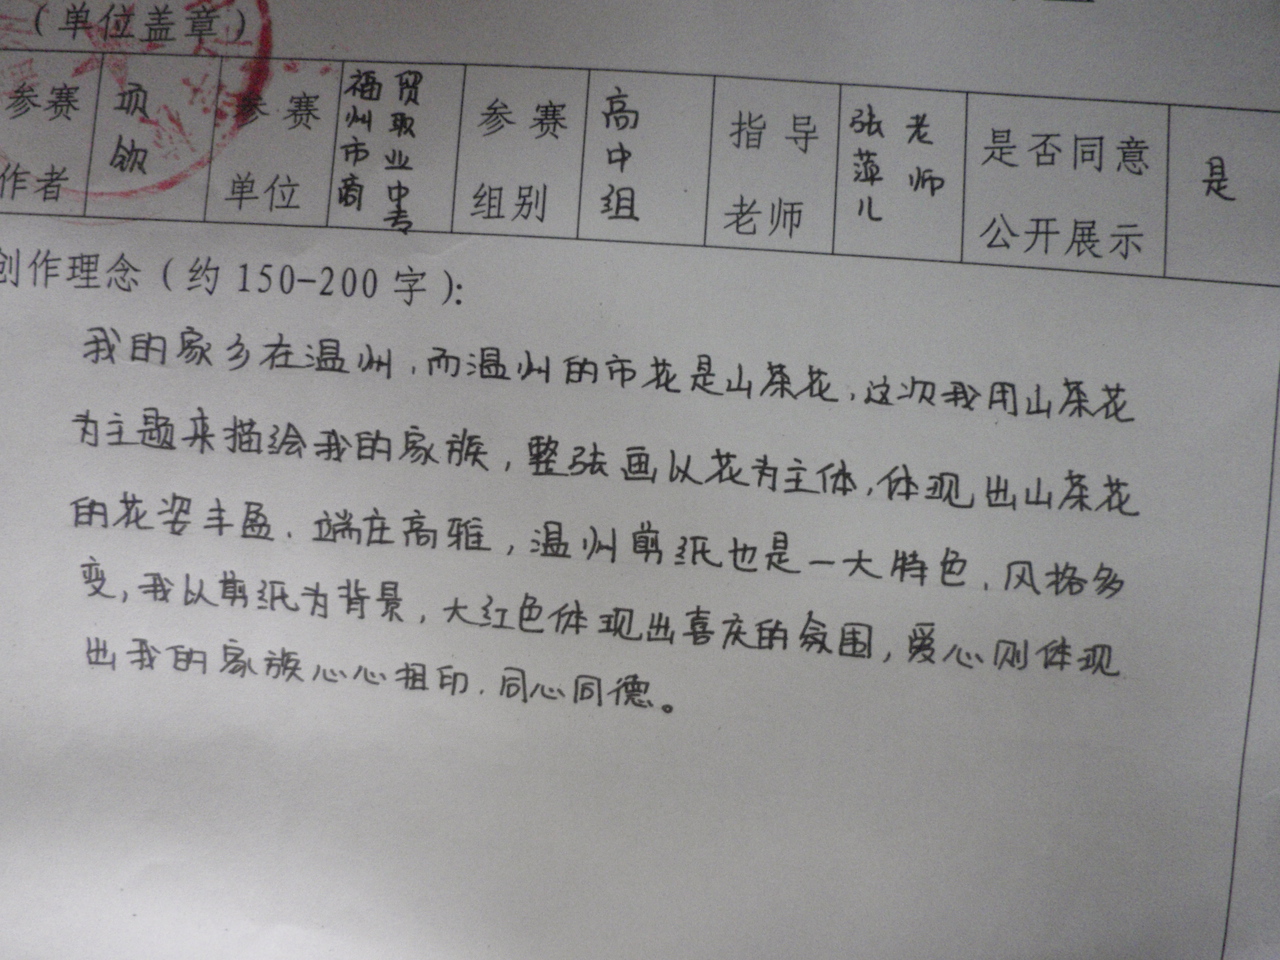 （单位盖章）
参赛作者 项钦 参赛单位 福州市商贸职业中专 参赛组别 高中组 指导老师 张萍儿老师 是否同意公开展示 是
创作理念（约150-200字）：
我的家乡在温州，而温州的市花是山茶花，这次我用山茶花
为主题来描绘我的家族，整张画以花为主体，体现出山茶花
的花姿丰盈、端庄高雅，温州剪纸也是一大特色，风格多
变，我以剪纸为背景，大红色体现出喜庆的氛围，爱心则体现
出我的家族心心相印，同心同德。